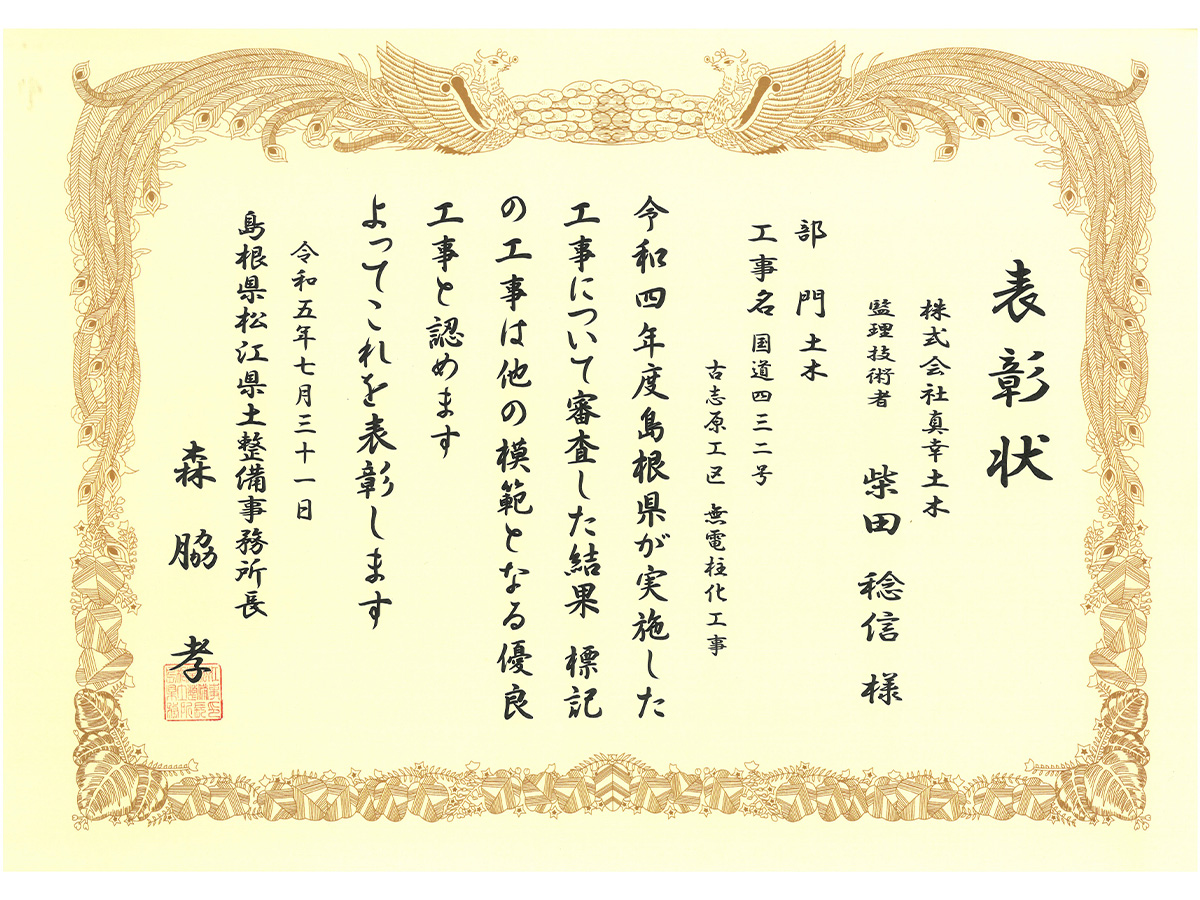 表彰状
株式会社真幸土木
監理技術者 柴田 稔信 様
部 門 土木
工事名 国道四三二号
古志原工区 無電柱化工事
令和四年度島根県が実施した
工事について審査した結果 標記
の工事は他の模範となる優良
工事と認めます
よってこれを表彰します
令和五年七月三十一日
島根県松江県土整備事務所長
森 脇 孝